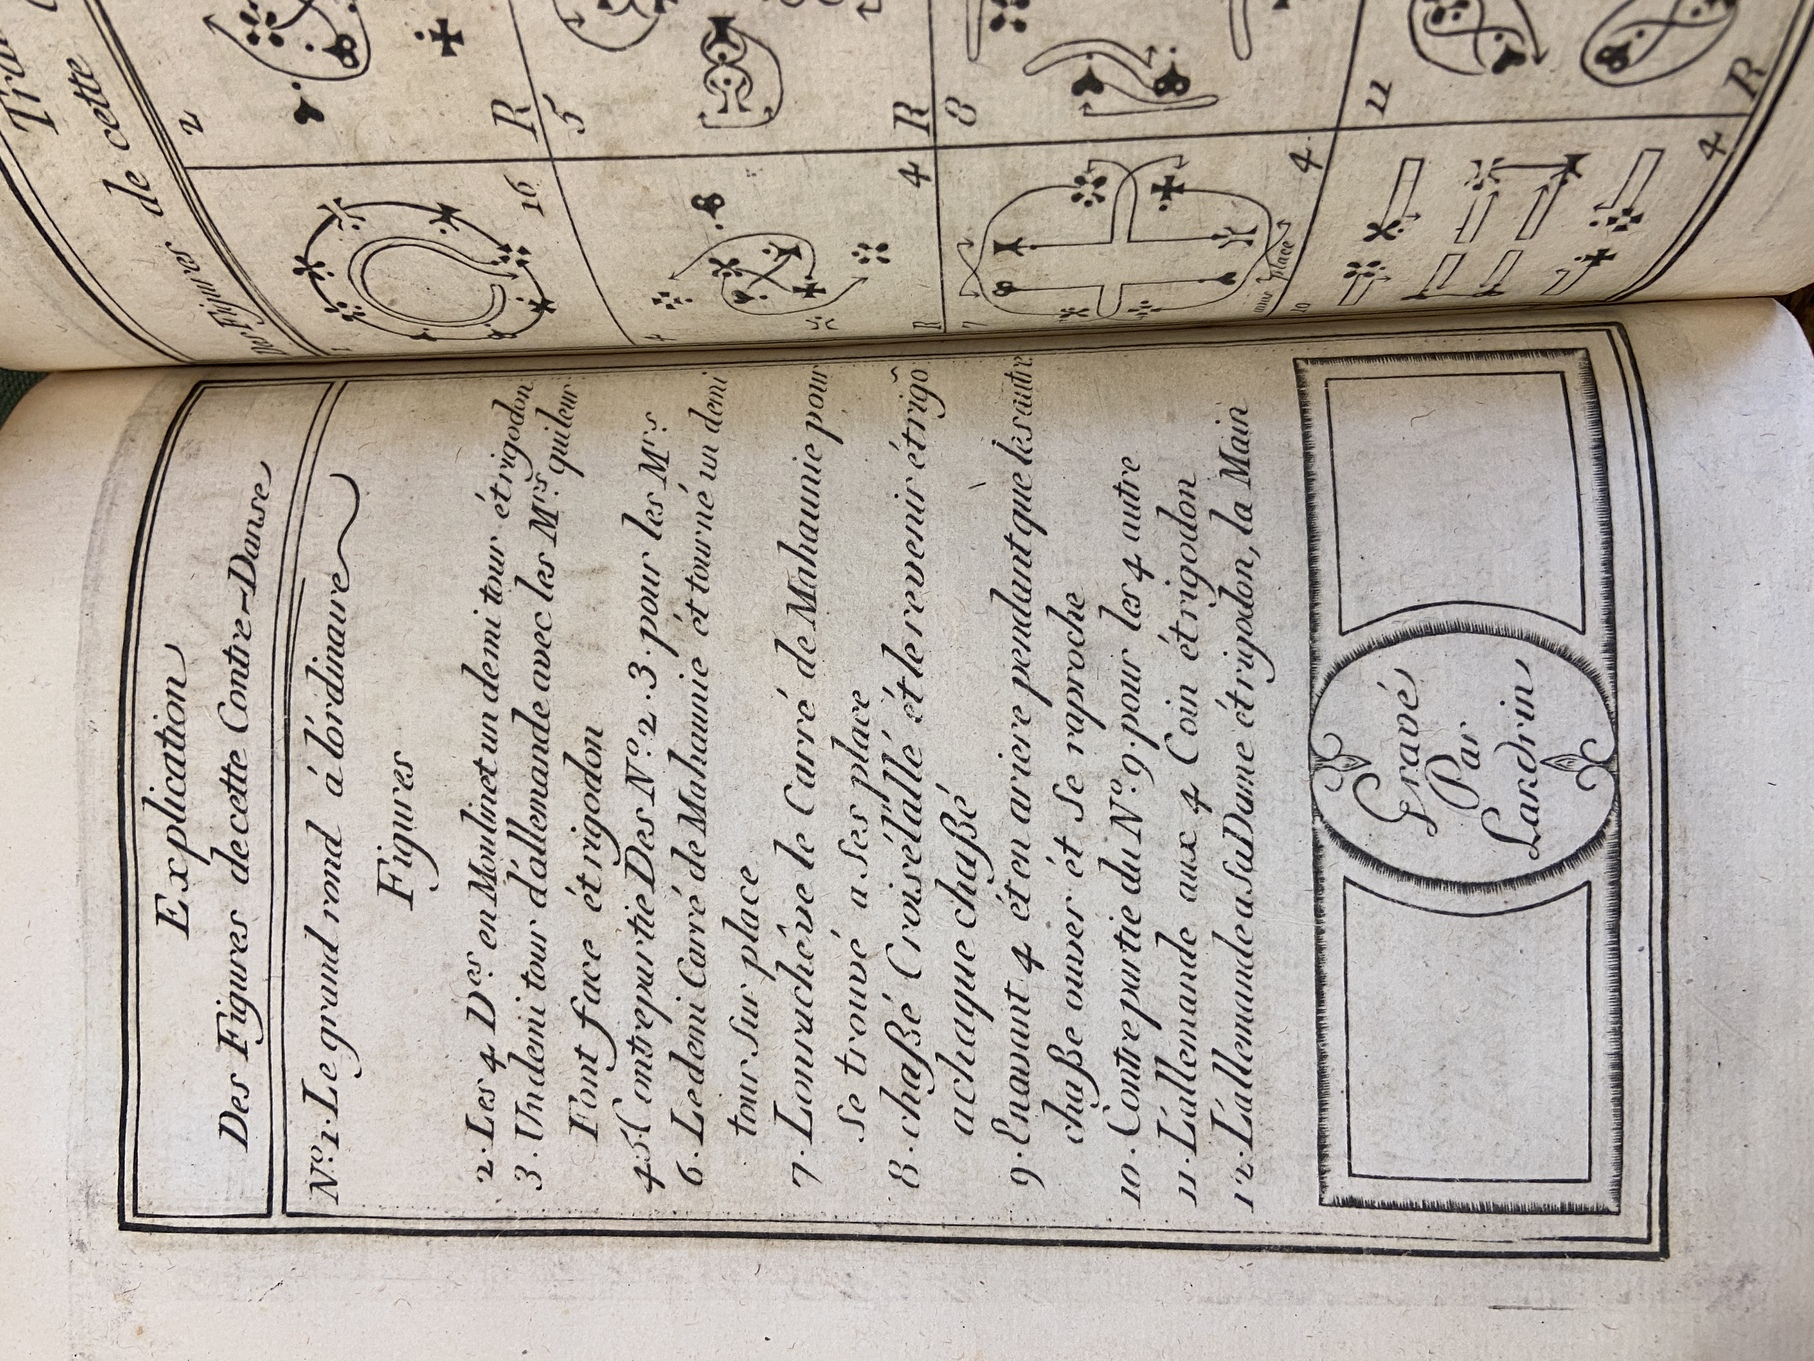 Explication
Des Figures de cette Contre-Danse
No. 1. Le grand rond á lórdinaire
Figures
2. Les 4 Des. en Moulinet un demi tour ét rigodon
3. Un demi tour d'allemande avec les Mrs. qui leur
Font face ét rigodon
4.5. Contrepartie Des No. 2. 3. pour les Mrs.
6. Le demi Carré de Mahaunie ét tourné un demi
tour sur place
7. L'on rachêve le Carré de Mahaunie pour
se trouvé a ses place
8. chaßé Croisé lállé ét le revenir ét rigõ
a chaque chaßé
9. En avant 4 ét en ariere pendant que les autre
chaße ouver ét se raproche
10. Contre partie du No. 9. pour les 4 autre
11. L'allemande aux 4 Coin ét rigodon
12. L'allemande a sa Dame ét rigodon, la Main
Gravé
Par
Landrin
de cette
Des Figures
1
16
2
R
4
4
5
R
7
une place
4
8
10
4
11
R
R